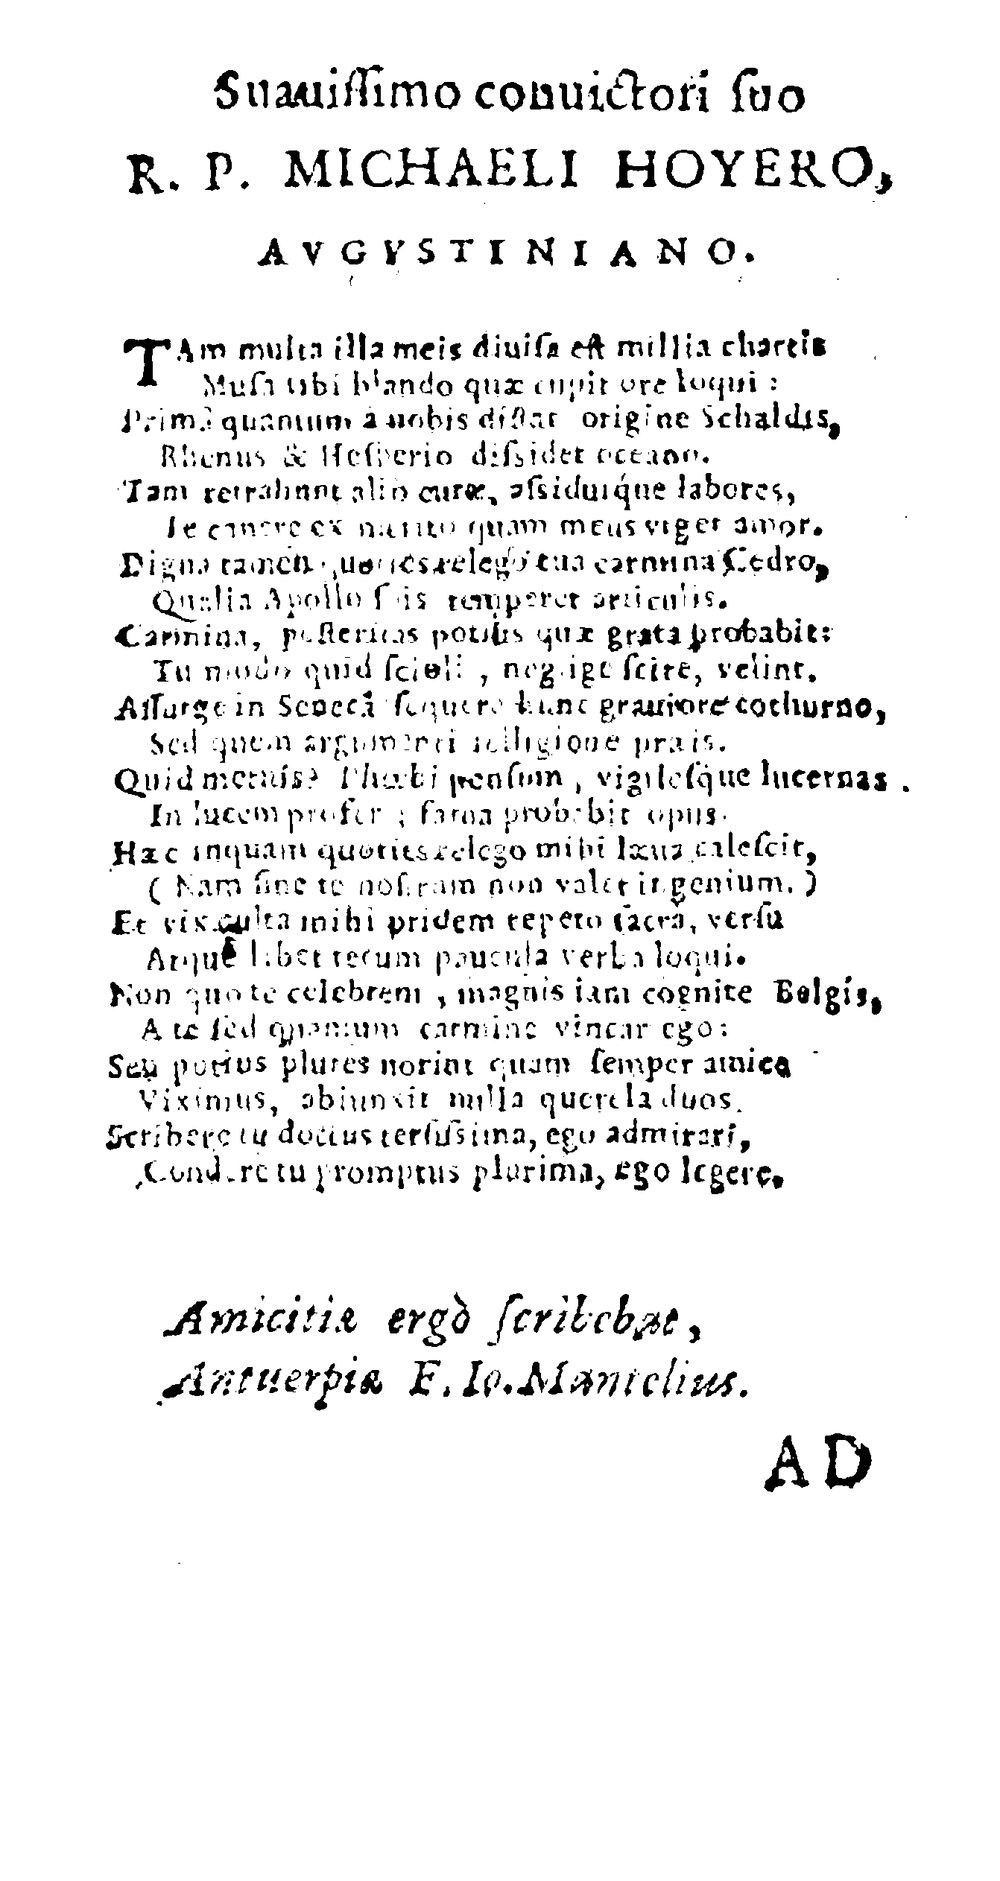 Suauiſſimo conuictori ſuo
R. P. MICHAELI HOYERO,
AVGVSTINIANO.
TAm multa illa meis diuiſa eſt millia chartis
Muſa tibi blando quæ cupit ore loqui :
Primâ quantum à nobis diſtat origine Schaldis,
Rhenus & Heſperio diſsidet oceano.
Tam retrahunt aliò curæ, aſsiduiq́ue labores,
Te canere ex merito quam meus vrget amor.
Digna tamen quoties relego tua carmina Cedro,
Qualia Apollo ſuis temperet articulis.
Carmina, poſteritas potius quæ grata probabit:
Tu modo quid ſcioli , neglige ſcire, velint.
Aſſurge in Senecâ ſequere hunc grauiore cothurno,
Sed quem argumenti relligione præis.
Quid metuis? Phœbi penſum , vigileſq́ue lucernas
In lucem profer ; fama probabit opus.
Hæc inquam quoties relego mihi læua caleſcit,
( Nam ſine te noſtrum non valet ingenium. )
Et vix culta mihi pridem repeto ſacra, verſu
Atque libet tecum paucula verba loqui.
Non quo te celebrem , magnis iam cognite Belgis,
A te ſed quantum carmine vincar ego:
Seu potius plures norint quam ſemper amice
Viximus, abiunxit nulla querela duos.
Scribere tu doctus terſiſsima, ego admirari,
Condere tu promptus plurima, ego legere.
Amicitiæ ergò ſcribebat,
Antuerpiæ F. Io. Mantelius.
AD